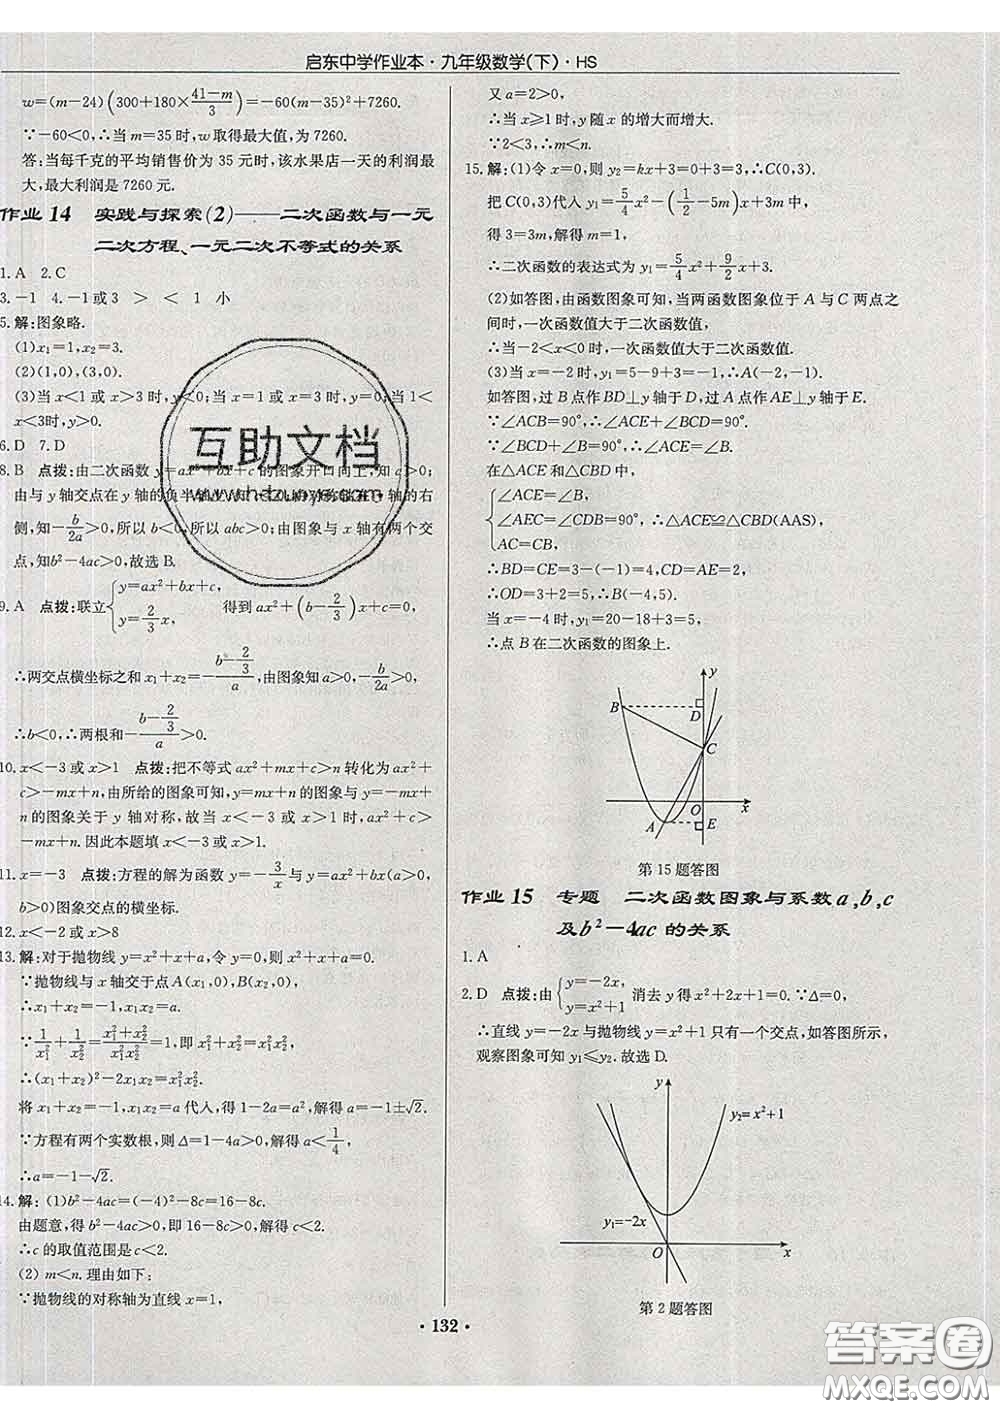 启东中学作业本·九年级数学(下)·HS
w=(m-24)(300+180×(41-m)/3)=-60(m-35)²+7260.
∵-60<0,∴当 m=35 时,w 取得最大值,为 7260.
答:当每千克的平均销售价为 35 元时,该水果店一天的利润最
大,最大利润是 7260 元.
作业 14 实践与探索(2)——二次函数与一元
二次方程、一元二次不等式的关系
1. A 2. C
3. -1 4. -1 或 3 > < 1 小
5. 解:图象略.
(1)x₁=1,x₂=3.
(2)(1,0),(3,0).
(3)当 x<1 或 x>3 时,y<0;当 x=1 或 x=3 时,y=0;当 1<
x<3时,y>0.
6. D 7. D
8. B 点拨:由二次函数 y=ax²+bx+c 的图象开口向上,知 a>0;
由与 y 轴交点在 y 轴的负半轴 轴的右
侧,知-b/2a>0,所以 b<0,所以 abc>0;由图象与 x 轴有两个交
点,知b²-4ac>0,故选 B.
9. A 点拨:联立{y=ax²+bx+c, y=2/3 x, 得到 ax²+(b-2/3)x+c=0
∴两交点横坐标之和 x₁+x₂=-(b-2/3)/a,由图象知 a>0,-b/2a>0,
∴b<0,∴两根和=-(b-2/3)/a>0.
10. x<-3 或 x>1 点拨:把不等式 ax²+mx+c>n 转化为 ax²+c>
-mx+n,由所给的图象可知,y=mx+n 的图象与 y=-mx+n
的图象关于 y 轴对称,故当 x<-3 或 x>1 时,ax²+c>
-mx+n. 因此本题填 x<-3 或 x>1.
11. x=-3 点拨:方程的解为函数 y=-3/x与 y=ax²+bx(a>0,
b>0)图象交点的横坐标.
12. x<-2 或 x>8
13. 解:对于抛物线 y=x²+x+a,令 y=0,则 x²+x+a=0.
∵抛物线与 x 轴交于点 A(x₁,0),B(x₂,0),
∴x₁+x₂=-1,x₁x₂=a.
∵1/x₁²+1/x₂²=(x₁²+x₂²)/(x₁²x₂²)=1,即 x₁²+x₂²=x₁²x₂²,
∴(x₁+x₂)²-2x₁x₂=x₁²x₂².
将 x₁+x₂=-1,x₁x₂=a 代入,得 1-2a=a²,解得 a=-1±√2.
∵方程有两个实数根,则 Δ=1-4a>0,解得 a<1/4,
∴a=-1-√2.
14. 解:(1)b²-4ac=(-4)²-8c=16-8c.
由题意,得 b²-4ac>0,即 16-8c>0,解得 c<2.
∴c 的取值范围是 c<2.
(2) m<n. 理由如下:
∵抛物线的对称轴为直线 x=1,
又 a=2>0,
∴当 x≥1 时,y 随 x 的增大而增大.
∵2<3,∴m<n.
15. 解:(1)令 x=0,则 y₂=kx+3=0+3=3,∴C(0,3).
把 C(0,3)代入 y₁=5/4 x²-(1/2-5m)x+3m 中,
得 3=3m,解得 m=1.
∴二次函数的表达式为 y₁=5/4 x²+9/2 x+3.
(2)如答图,由函数图象可知,当两函数图象位于 A 与 C 两点之
间时,一次函数值大于二次函数值,
∴当-2<x<0 时,一次函数值大于二次函数值.
(3)当 x=-2 时,y₁=5-9+3=-1,∴A(-2,-1).
如答图,过 B 点作 BD⊥y 轴于 D,过 A 点作 AE⊥y轴于 E.
∵∠ACB=90°,∴∠ACE+∠BCD=90°.
∵∠BCD+∠B=90°,∴∠ACE=∠B.
在△ACE 和△CBD 中,
{∠ACE=∠B,
∠AEC=∠CDB=90°, ∴△ACE≌△CBD(AAS),
AC=CB,
∴BD=CE=3-(-1)=4,CD=AE=2,
∴OD=3+2=5,∴B(-4,5).
当 x=-4 时,y₁=20-18+3=5,
∴点 B 在二次函数的图象上.
y
B D
C
O x
A E
第15题答图
作业 15 专题 二次函数图象与系数a,b,c
及b²-4ac 的关系
1. A
2. D 点拨:由{y=-2x, y=x²+1 消去 y 得 x²+2x+1=0. ∵Δ=0,
∴直线 y=-2x 与抛物线 y=x²+1 只有一个交点,如答图所示,
观察图象可知 y₁≤y₂. 故选 D.
y
y₂=x²+1
y₁=-2x
O x
第2题答图
·132·
互助文档
答案圈
MXQE.COM